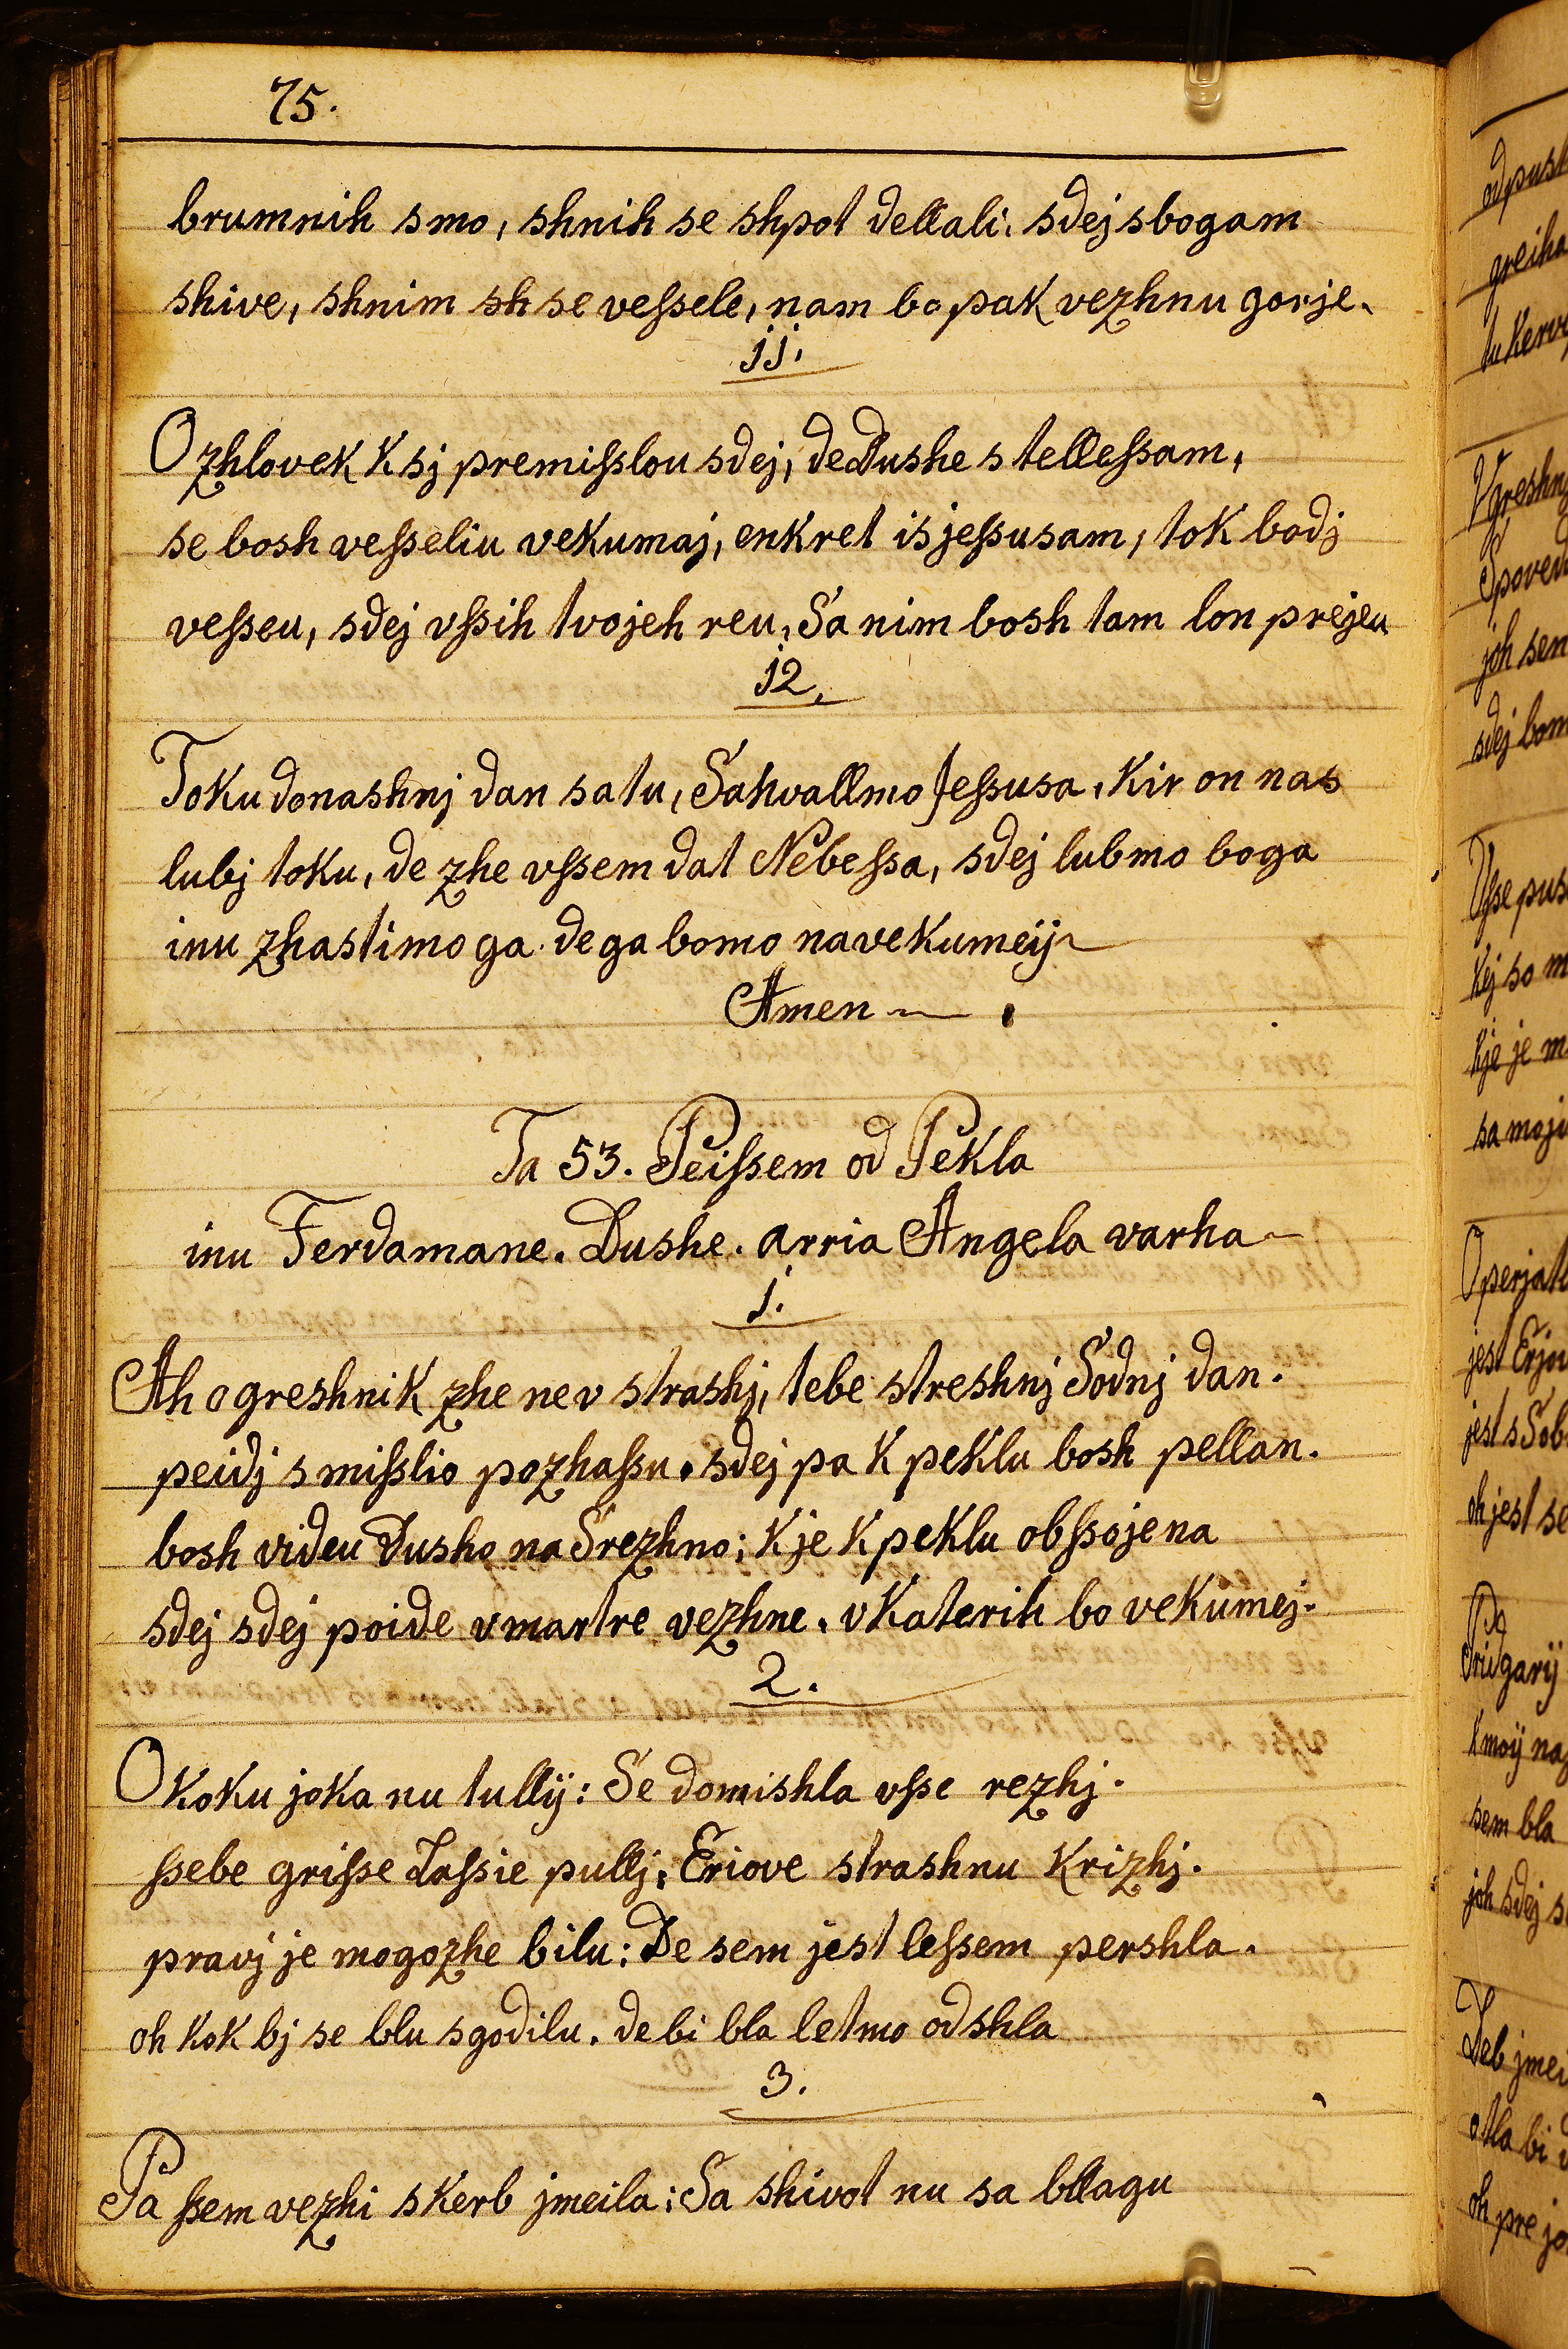 75.
brumnih smo, shnih se shpot dellali. sdej sbogam
shive, shnim sh se veſsele, nam bo pak vezhnu gorje.
jj.
O zhlovek k sj premiſslou sdej, de Dushe s telleſsam,
se bosh veſseliu vekumaj, enkret is jeſsusam, tok bodj
veſseu, sdej vſsih tvojeh reu, Sa nim bosh tam lon prejeu
j2.
Toku donashnj dan sa tu, Sahvallmo Jeſsusa, Kir on nas
lubj toku, de zhe vſsem dat Nebeſsa, sdej lubmo boga
inu zhastimo ga de ga bomo navekumeij
Amen
Ta 53. Peiſsem od Pekla
inu Ferdamane. Dushe. arria Angela varha
j.
Ah o greshnik zhe ne v strashj, tebe streshnj Sodnj dan.
peidj s miſslio pozhaſsu. sdej pa k peklu bosh pellan.
bosh videu Dusho na Srezhno; K je k peklu obſsojena
sdej sdej poide v martre vezhne. v Katerih bo vekumej.
2.
O Koku joka nu tullij: Se domishla vſse rezhj.
ſsebe griſse Laſsie pullj, Eriove strashnu Krizhj.
pravj je mogozhe bilu: De sem jest leſsem pershla.
oh Kok bj se blu sgodilu. de bi bla letmo odshla
3.
Pa ſsem vezhi skerb jmeila: Sa shivot nu sa bllagu